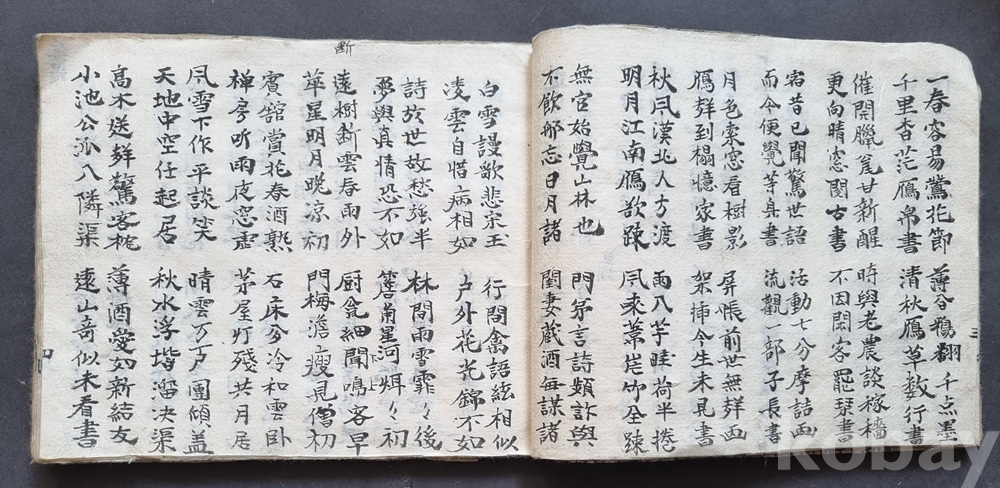 一春容易鶯花節 薄今鴉翻千点墨
千里杳茫鴈帛書 清秋鴈草数行書
催開臘瓮甘新醒 時與老農談稼穡
更向晴窓閱古書 不因閑客罷琴書
宕昔已聞驚世語 活動七分摩詰画
而今便覺等身書 流觀一部子長書
月色索窓看樹影 屏帳前世無群画
鴈群到榻憶家書 架揷今生未見書
秋風漠北人方渡 雨入芋畦荷半捲
明月江南鴈欲踈 風来葦岸竹全踈
無官始覺山林也 門茅言詩類訟與
不飮那忘日月諸 閨妻蔵酒每謀諸
白雪謾歌悲宗玉 行間禽語絃相似
凌雲自惜病相如 户外花光錦不如
詩於世故愁強半 林間雨雪霏々後
夢與真情恐不如 簷角星河烱々初
断
遠樹斷雲春雨外 厨細聞鳴客早
下 上
華星明月晩凉初 門梅澹瘦見僧初
賓舘賞花春酒熟 石床分冷和雲卧
禅房听雨夜窓虛 茅屋灯殘共月居
風雪下作平談笑 晴雲万戸團傾盖
天地中空任起居 秋水浮堦溜決渠
高木送群驚客枕 薄酒愛如新結友
小池公派八隣渠 遠山奇似未看書
kobay